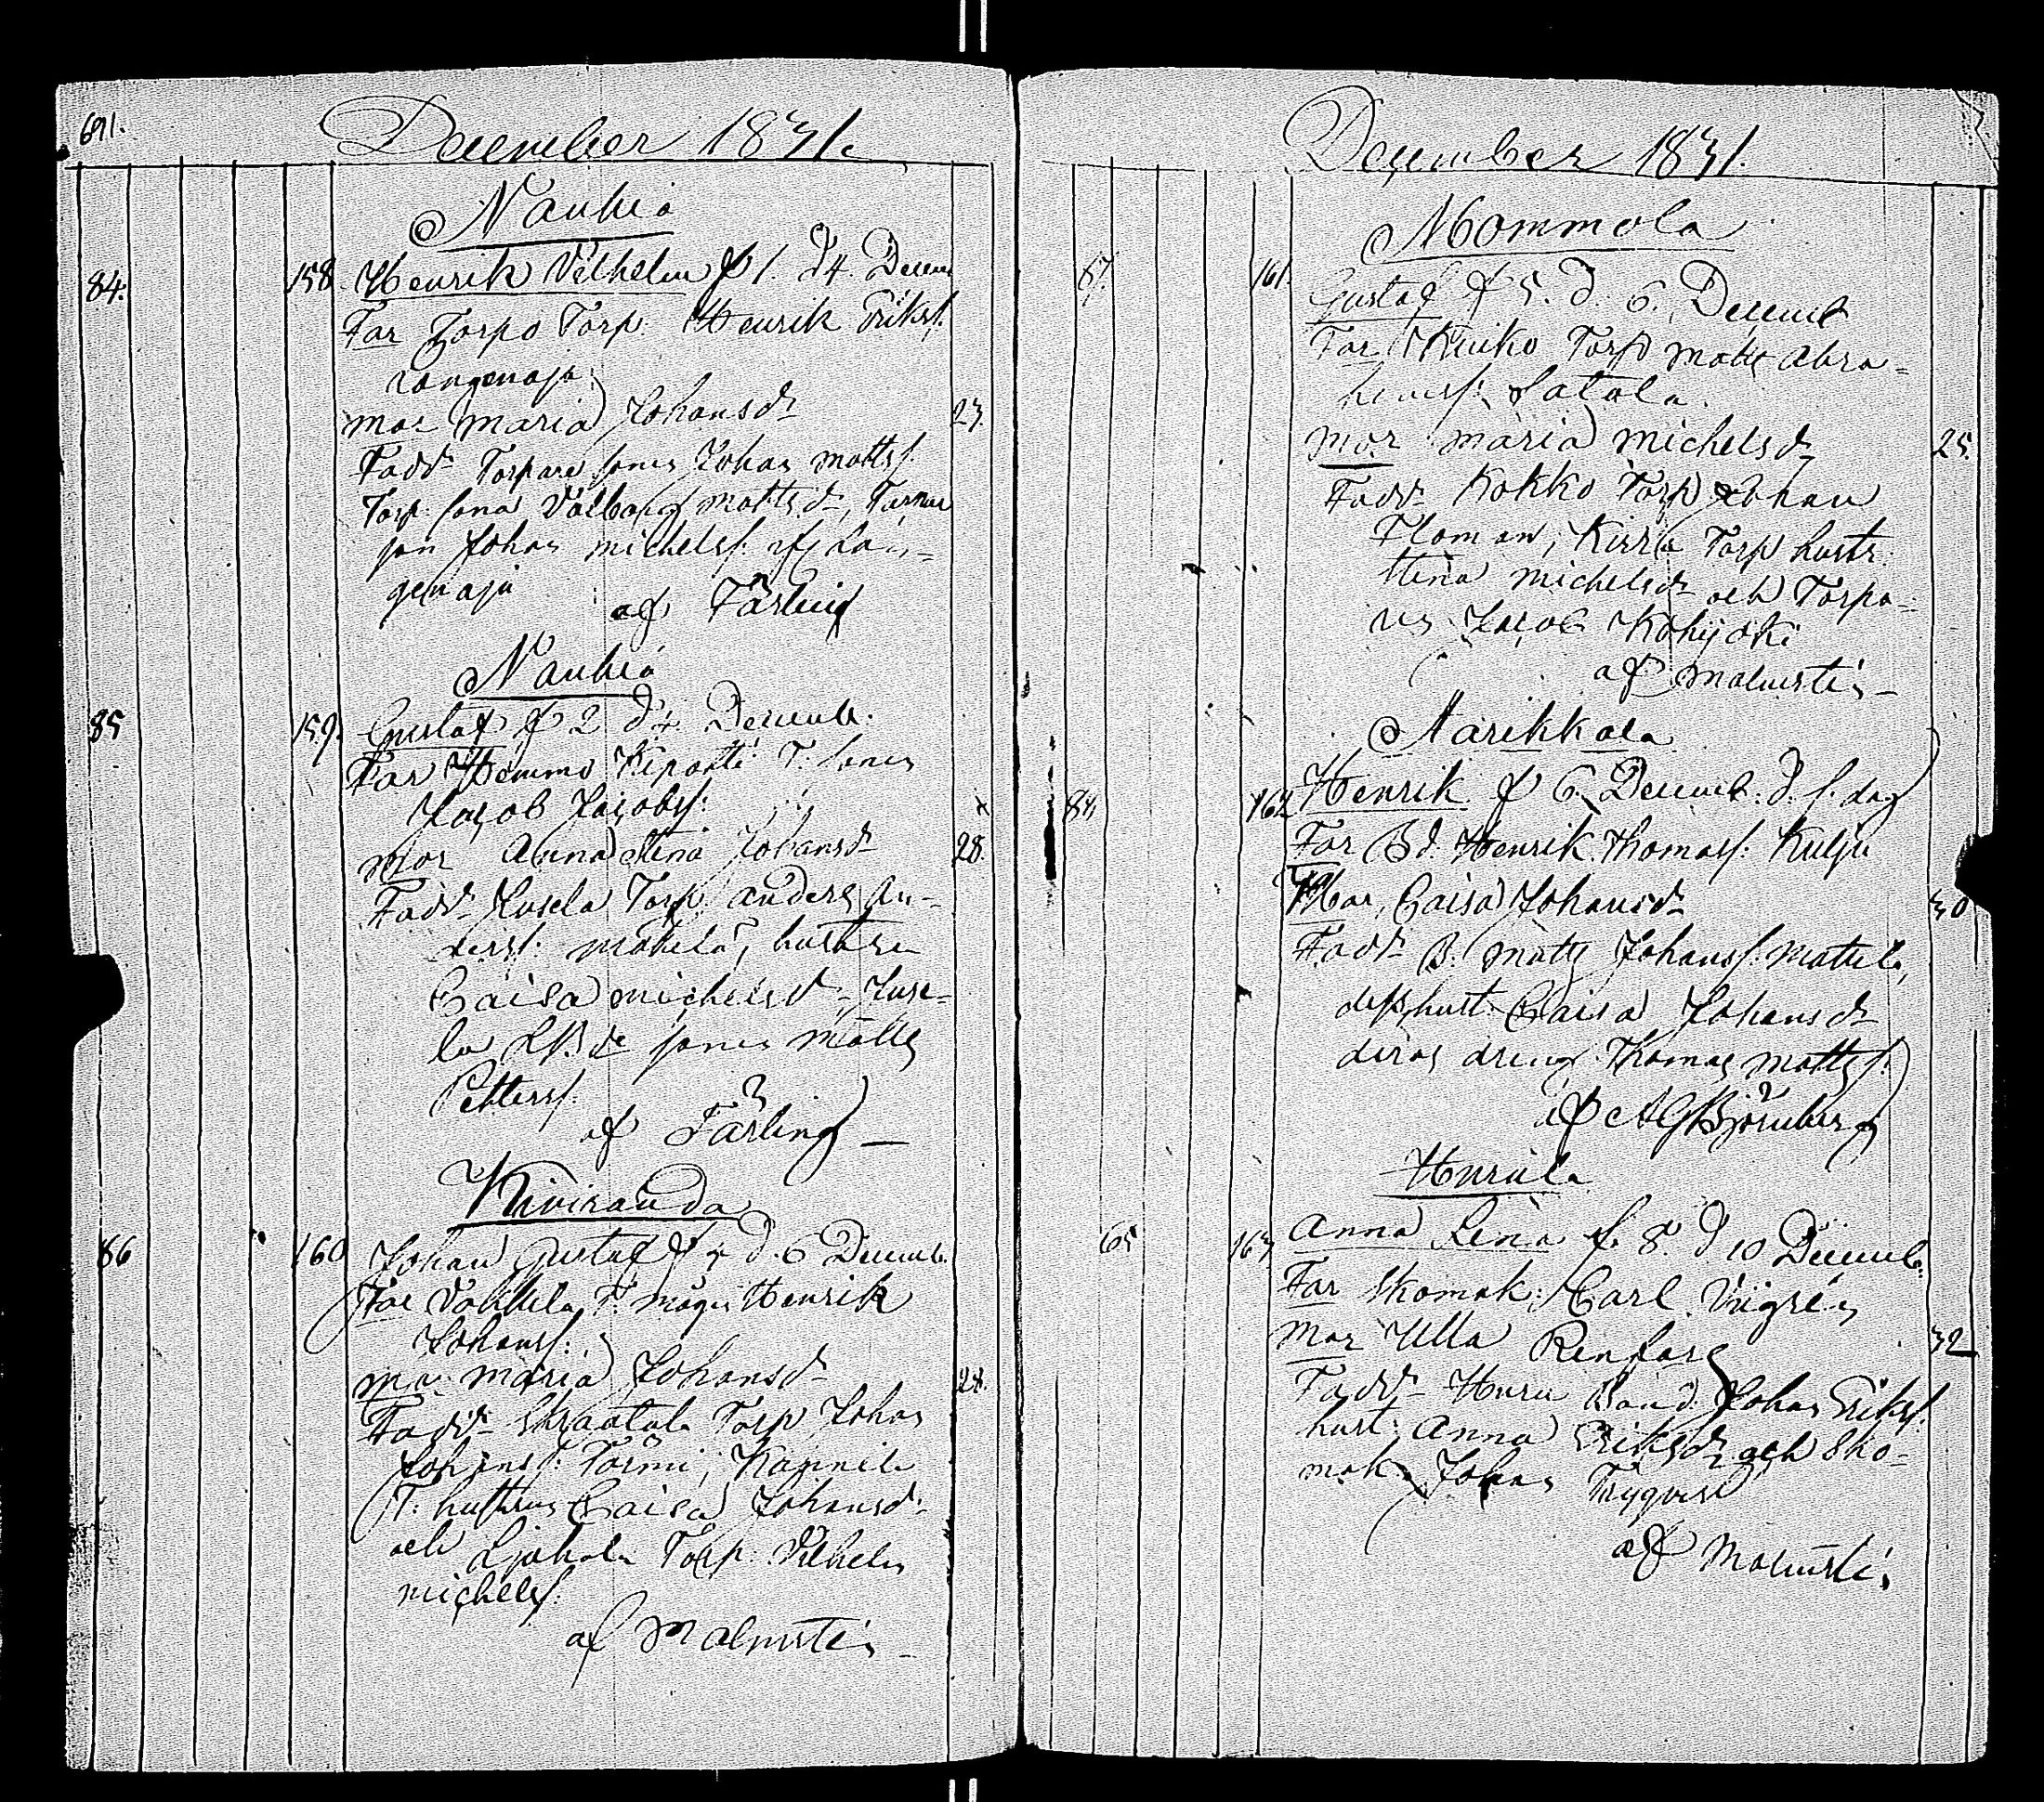 691.
December 1831.
Nauhia
84. 158. Henrik Vilhelm f 1. d 4. Decem
Far Torpo Torp: Henrik Erikss.
Langenoja
mor Maria Johansdr 23.
Faddr Torpare sonen Johan Mattss.
Torp: sona Valborg Mattsdr,
son Johan Michelss: ifj Lan-
genoja
af Färling
Nauhia
85 159. Gustaf f 2 d 4. Decemb.
Far Hemmo Kipatti T: sonen
Jacob Jacobss:
mor Anna Stina Johansdr 28.
Faddr Jusela Torp. Anders An-
derss: Mattila, hustrun
Caisa Michelsdr Juse-
la sonen Matts
Petterss.
af Färling
Kiviranda
86 160 Johan Gustaf f 5 d. 6 Decemb.
Far Vohlila T: mågen Henrik
Johanss:
mor Maria Johansdr 28.
Faddr Skraatula Torp Johan
Johanss: Tormi, Kappila
T: hustrun Caisa Johansdr
och Torp: Vilhelm
Michelss.
af Malmstén
December 1831.
Mommola
87. 161. Gustaf f 5. d. 6. Decemb
Far Torp Matts Abra-
hamss: Latola
mor Maria Michelsd 25.
Faddr Kokko Torp Johan
Floman, Kirra Torp hustr.
Stina Michelsdr och Torpa-
ren Jacob Kohijoki
af Malmstén
Narikkala
88 162 Henrik f 6. Decemb. d. s. dag
Far Bd. Henrik Thomass: Kulju
Mor, Caisa Johansdr 30
Faddr B. Matts Johanss: Mattila,
dess hust. Caisa Johansdr
deras dreng Thomas Mattss:
af AG Björnberg
Huruila
65 163 Anna Lena f. 8. d 10 Decemb.
Far Skomak: Carl Viigrén
Mor Ulla Renfors 32
Faddr Huru Bond. Johan Erikss.
hust: Anna Eriksdr och Sko-
mak Johan
af Malmstén